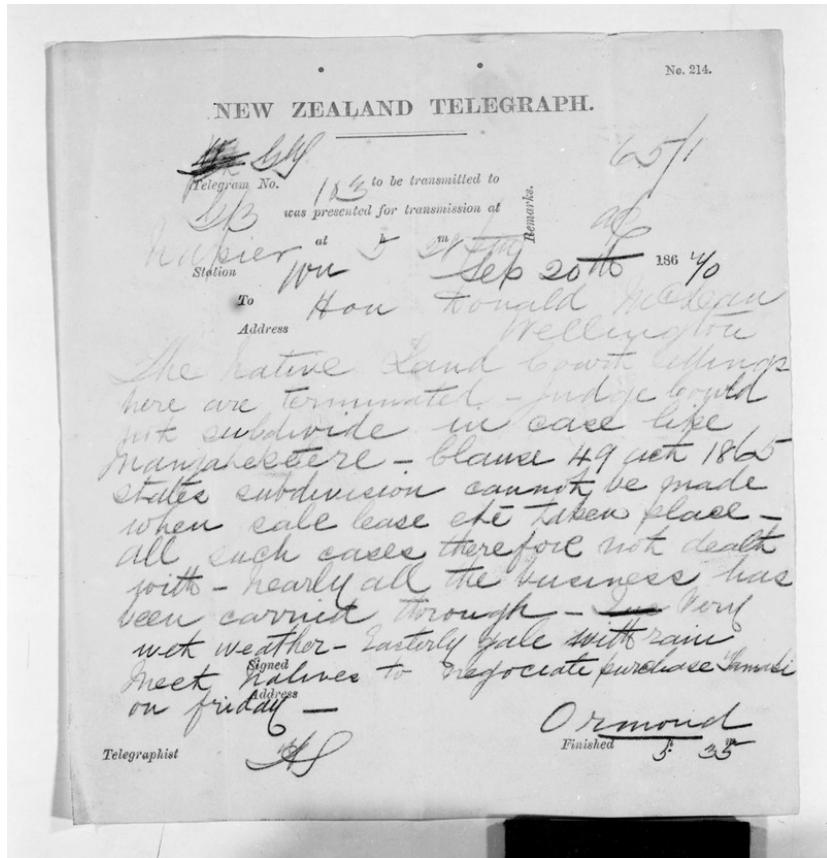 No. 214.
NEW ZEALAND TELEGRAPH.
65/1
Telegram No. 183 to be transmitted to
was presented for transmission at
Remarks.
Napier at 5 h m
Station Wn Sep 20th 186 70
To Hon Donald McLean
Address Wellington
The Native Land Court sittings
here are terminated - Judge could
not subdivide in case like
- Clause 49 act 1865
states subdivision cannot be made
when sale lease etc taken place -
all such cases therefore not dealt
with - nearly all the business has
been carried through - Very
wet weather - Easterly gale with rain
Signed
Meet natives to negociate purchase Tamaki
Address
on friday -
Ormond
Telegraphist
Finished 5 35